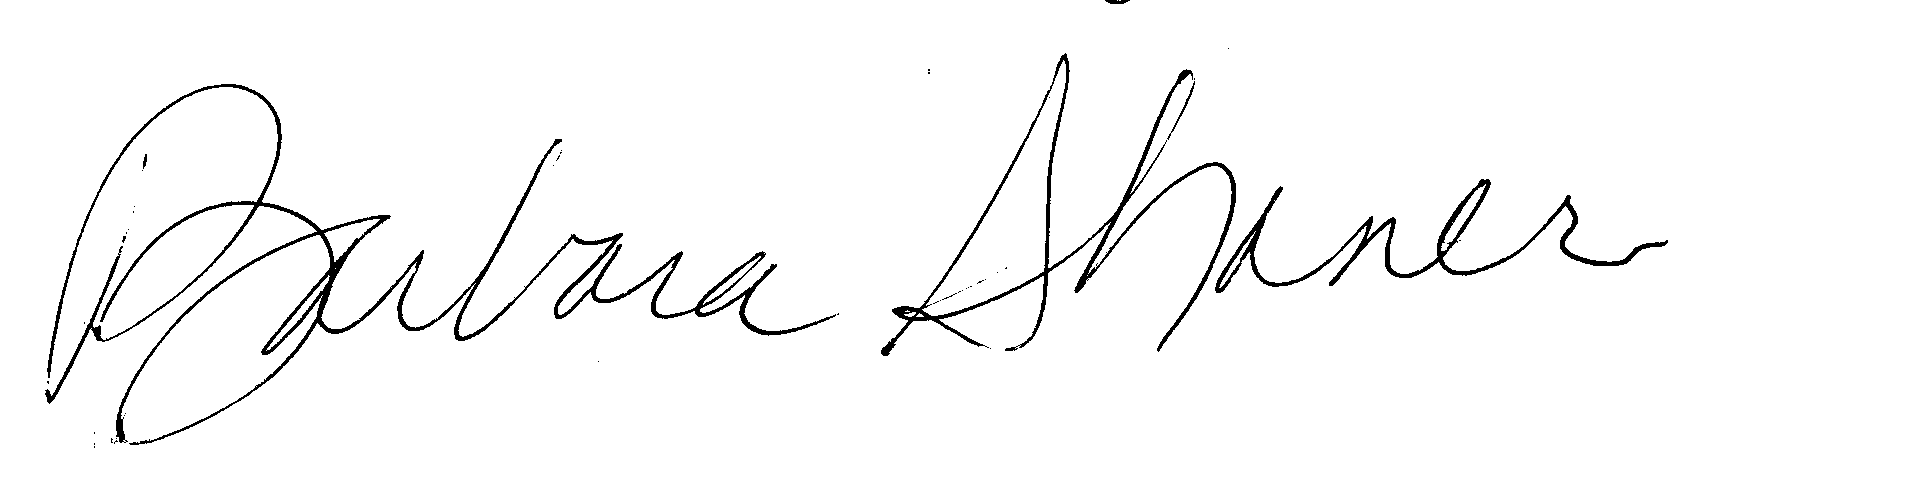 Barbara Shaner